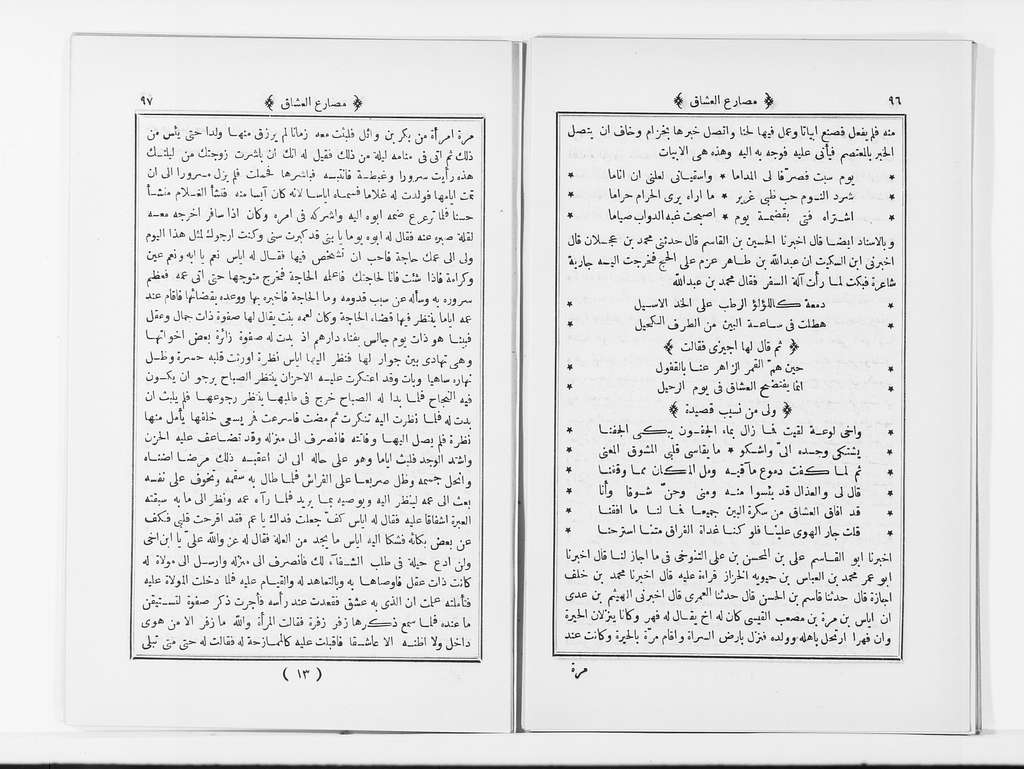 ٩٦
﴿ مصارع العشاق ﴾
منه فلم يفعل فصنع ابياتا وعمل فيها لحنا واتصل خبرها بخزام وخاف ان يتصل
الخبر بالمعتصم فيأتى عليه فوجه به اليه وهذه هى الابيات
* يوم سبت فصرّفا لى المداما * واسقيانى لعلنى ان اناما *
* شرد النوم حب ظبى غرير * ما اراه يرى الحرام حراما *
* اشتراه فتى بقضمة يوم * اصبحت غبه الدواب صياما *
وبالاسناد ايضا قال اخبرنا الحسين بن القاسم قال حدثنى محمد بن عجلان قال
اخبرنى ابن السكيت ان عبدالله بن طاهر عزم على الحج فخرجت اليه جارية
شاعرة فبكت لما رأت آلة السفر فقال محمد بن عبدالله
* دمعة كاللؤلؤ الرطب على الخد الاسيل *
* هطلت فى ساعة البين من الطرف الكحيل *
﴿ ثم قال لها اجيزى فقالت ﴾
* حين هم القمر الزاهر عنا بالافول *
* انما يفتضح العشاق فى يوم الرحيل *
﴿ ولى من نسيب قصيدة ﴾
* واخى لوعة لقيت فما زال بماء الجفون يبكى الجفنا *
* يشتكى وجده الىّ واشكو * ما يقاسى قلبى المشوق المعنى *
* ثم لما كفت دموع مآقيه ومل المكان مما وقفنا *
* قال لى والعذال قد يئسوا منه ومنى وحنّ شوقا وأنا *
* قد افاق العشاق من سكرة البين جميعا فما لنا ما افقنا *
* قلت جار الهوى علينا فلو كنا غداة الفراق متنا استرحنا *
اخبرنا ابو القاسم على بن المحسن بن على التنوخى فى ما اجاز لنا قال اخبرنا
ابو عمر محمد بن العباس بن حيويه الخزاز قراءة عليه قال اخبرنا محمد بن خلف
اجازة قال حدثنا قاسم بن الحسن قال حدثنا العمرى قال اخبرنى الهيثم بن عدى
ان اياس بن مرة بن مصعب القيسى كان له اخ يقال له فهر وكانا ينزلان الحيرة
وان فهرا ارتحل باهله وولده فنزل بارض السراة واقام مرّة بالحيرة وكانت عند
مرة
٩٧
﴿ مصارع العشاق ﴾
مرة امرأة من بكر بن وائل فلبثت معه زمانا لم يرزق منها ولدا حتى يئس من
ذلك ثم اتى فى منامه ليلة من ذلك فقيل له انك ان باشرت زوجتك من ليلتك
هذه رأيت سرورا وغبطة فانتبه فباشرها فحملت فلم يزل مسرورا الى ان
تمت ايامها فولدت له غلاما فسماه اياسا لانه كان آيسا منه فنشأ الغلام منشأ
حسنا فلما ترعرع ضمه ابوه اليه واشركه فى امره وكان اذا سافر اخرجه معه
لقلة صبره عنه فقال له ابوه يوما يا بنى قد كبرت سنى وكنت ارجوك لمثل هذا اليوم
ولى الى عمك حاجة فاحب ان تشخص فيها فقال له اياس نعم يا ابه ونعم عين
وكرامة فاذا شئت فانا لحاجتك فاعلمه الحاجة فخرج متوجها حتى اتى عمه فعظم
سروره به وسأله عن سبب قدومه وما الحاجة فاخبره بها ووعده بقضائها فاقام عند
عمه اياما ينتظر فيها قضاء الحاجة وكان لعمه بنت يقال لها صفوة ذات جمال وعقل
فبينا هو ذات يوم جالس بفناء دارهم اذ بدت له صفوة زائرة بعض اخواتها
وهى تهادى بين جوار لها فنظر اليها اياس نظرة اورثت قلبه حسرة وظل
نهاره ساهيا وبات وقد اعتكرت عليه الاحزان ينتظر الصباح يرجو ان يكون
فيه النجاح فلما بدا له الصباح خرج فى طلبها ينتظر رجوعها فلم يلبث ان
بدت له فلما نظرت اليه تنكرت ثم مضت فاسرعت فمر يسعى خلفها يأمل منها
نظرة فلم يصل اليها وفاتته فانصرف الى منزله وقد تضاعف عليه الحزن
واشتد الوجد فلبث اياما وهو على حاله الى ان اعقبه ذلك مرضا اضناه
وانحل جسمه وظل صريعا على الفراش فلما طال به سقمه وتخوف على نفسه
بعث الى عمه لينظر اليه ويوصيه بما يريد فلما رآه عمه ونظر الى ما به سبقته
العبرة اشفاقا عليه فقال له اياس كفّ جعلت فداك يا عم فقد اقرحت قلبى فكف
عن بعض بكائه فشكا اليه اياس ما يجد من العلة فقال له عز والله علىّ يا ابن اخى
ولن ادع حيلة فى طلب الشفاء لك فانصرف الى منزله وارسل الى مولاة له
كانت ذات عقل فاوصاها به وبالتعاهد له والقيام عليه فلما دخلت المولاة عليه
فتأملته علمت ان الذى به عشق فقعدت عند رأسه فأجرت ذكر صفوة لتستيقن
ما عنده فلما سمع ذكرها زفر زفرة فقالت المرأة والله ما زفر الا من هوى
داخل ولا اظنه الا عاشقا فاقبلت عليه كالممازحة له فقالت له حتى متى تبلى
( ١٣ )